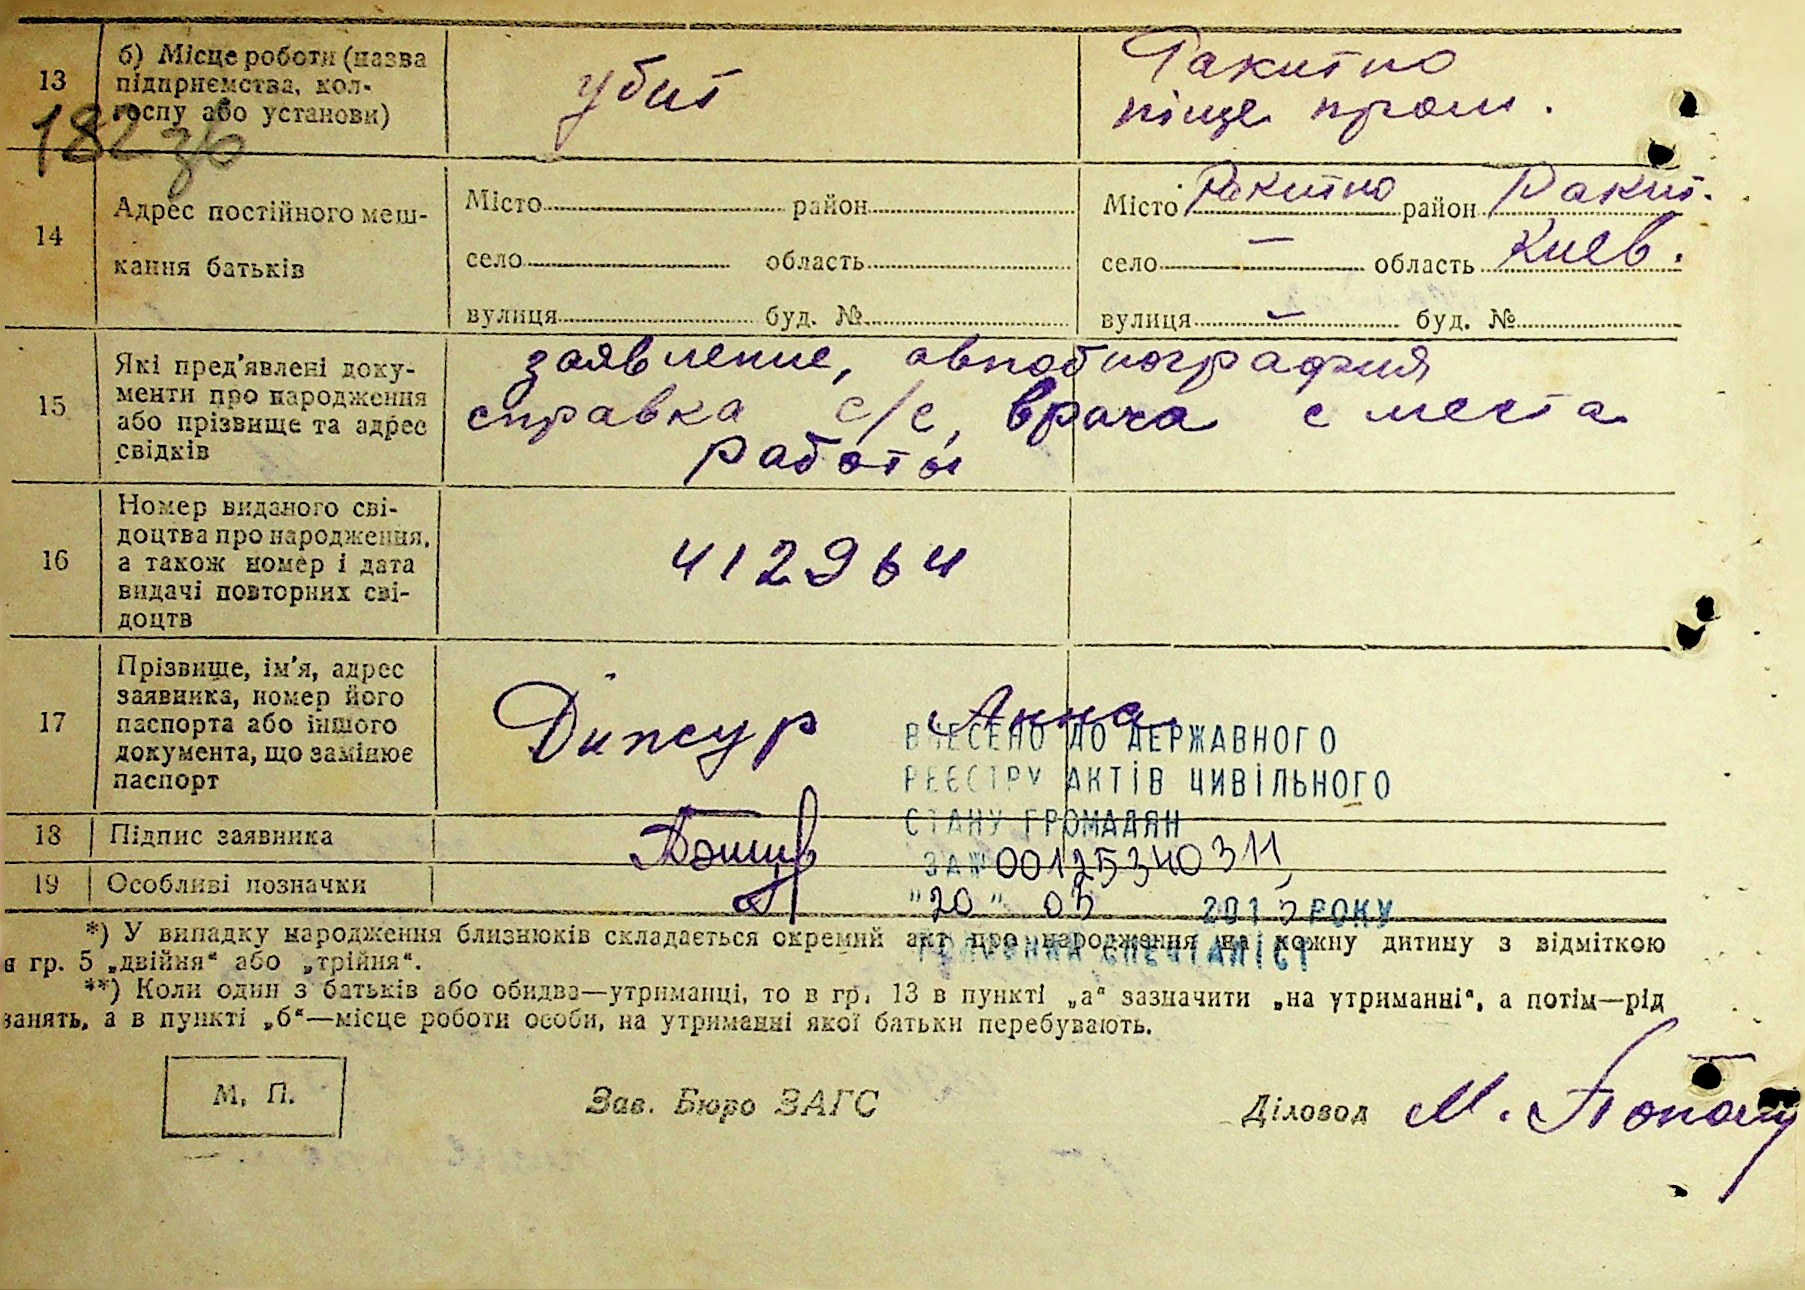 13
б) Місце роботи (назва
підприємства, кол-
госпу або установи)
убит
Ракитно
пище пром.
182 зв
14
Адрес постійного меш-
кання батьків
Місто район
село область
вулиця буд. №
Місто Ракитно район Ракит.
село — область Киев.
вулиця — буд. №
15
Які пред'явлені доку-
менти про народження
або прізвище та адрес
свідків
заявление, автобиография
справка с/с, врача с места
работы
16
Номер виданого сві-
доцтва про народження,
а також номер і дата
видачі повторних сві-
доцтв
412964
17
Прізвище, ім'я, адрес
заявника, номер його
паспорта або іншого
документа, що замінює
паспорт
Дижур Анна
ВНЕСЕНО ДО ДЕРЖАВНОГО
РЕЄСТРУ АКТІВ ЦИВІЛЬНОГО
СТАНУ ГРОМАДЯН
ЗА № 00125340311
"20" 03 2015 РОКУ
ГОЛОВНИЙ СПЕЦІАЛІСТ
18
Підпис заявника
19
Особливі позначки
*) У випадку народження близнюків складається окремий акт про народження на кожну дитину з відміткою
в гр. 5 „двійня“ або „трійня“.
**) Коли один з батьків або обидва—утриманці, то в гр. 13 в пункті „а“ зазначити „на утриманні“, а потім—рід
занять, а в пункті „б“—місце роботи особи, на утриманні якої батьки перебувають.
М. П.
Зав. Бюро ЗАГС
Діловод М.